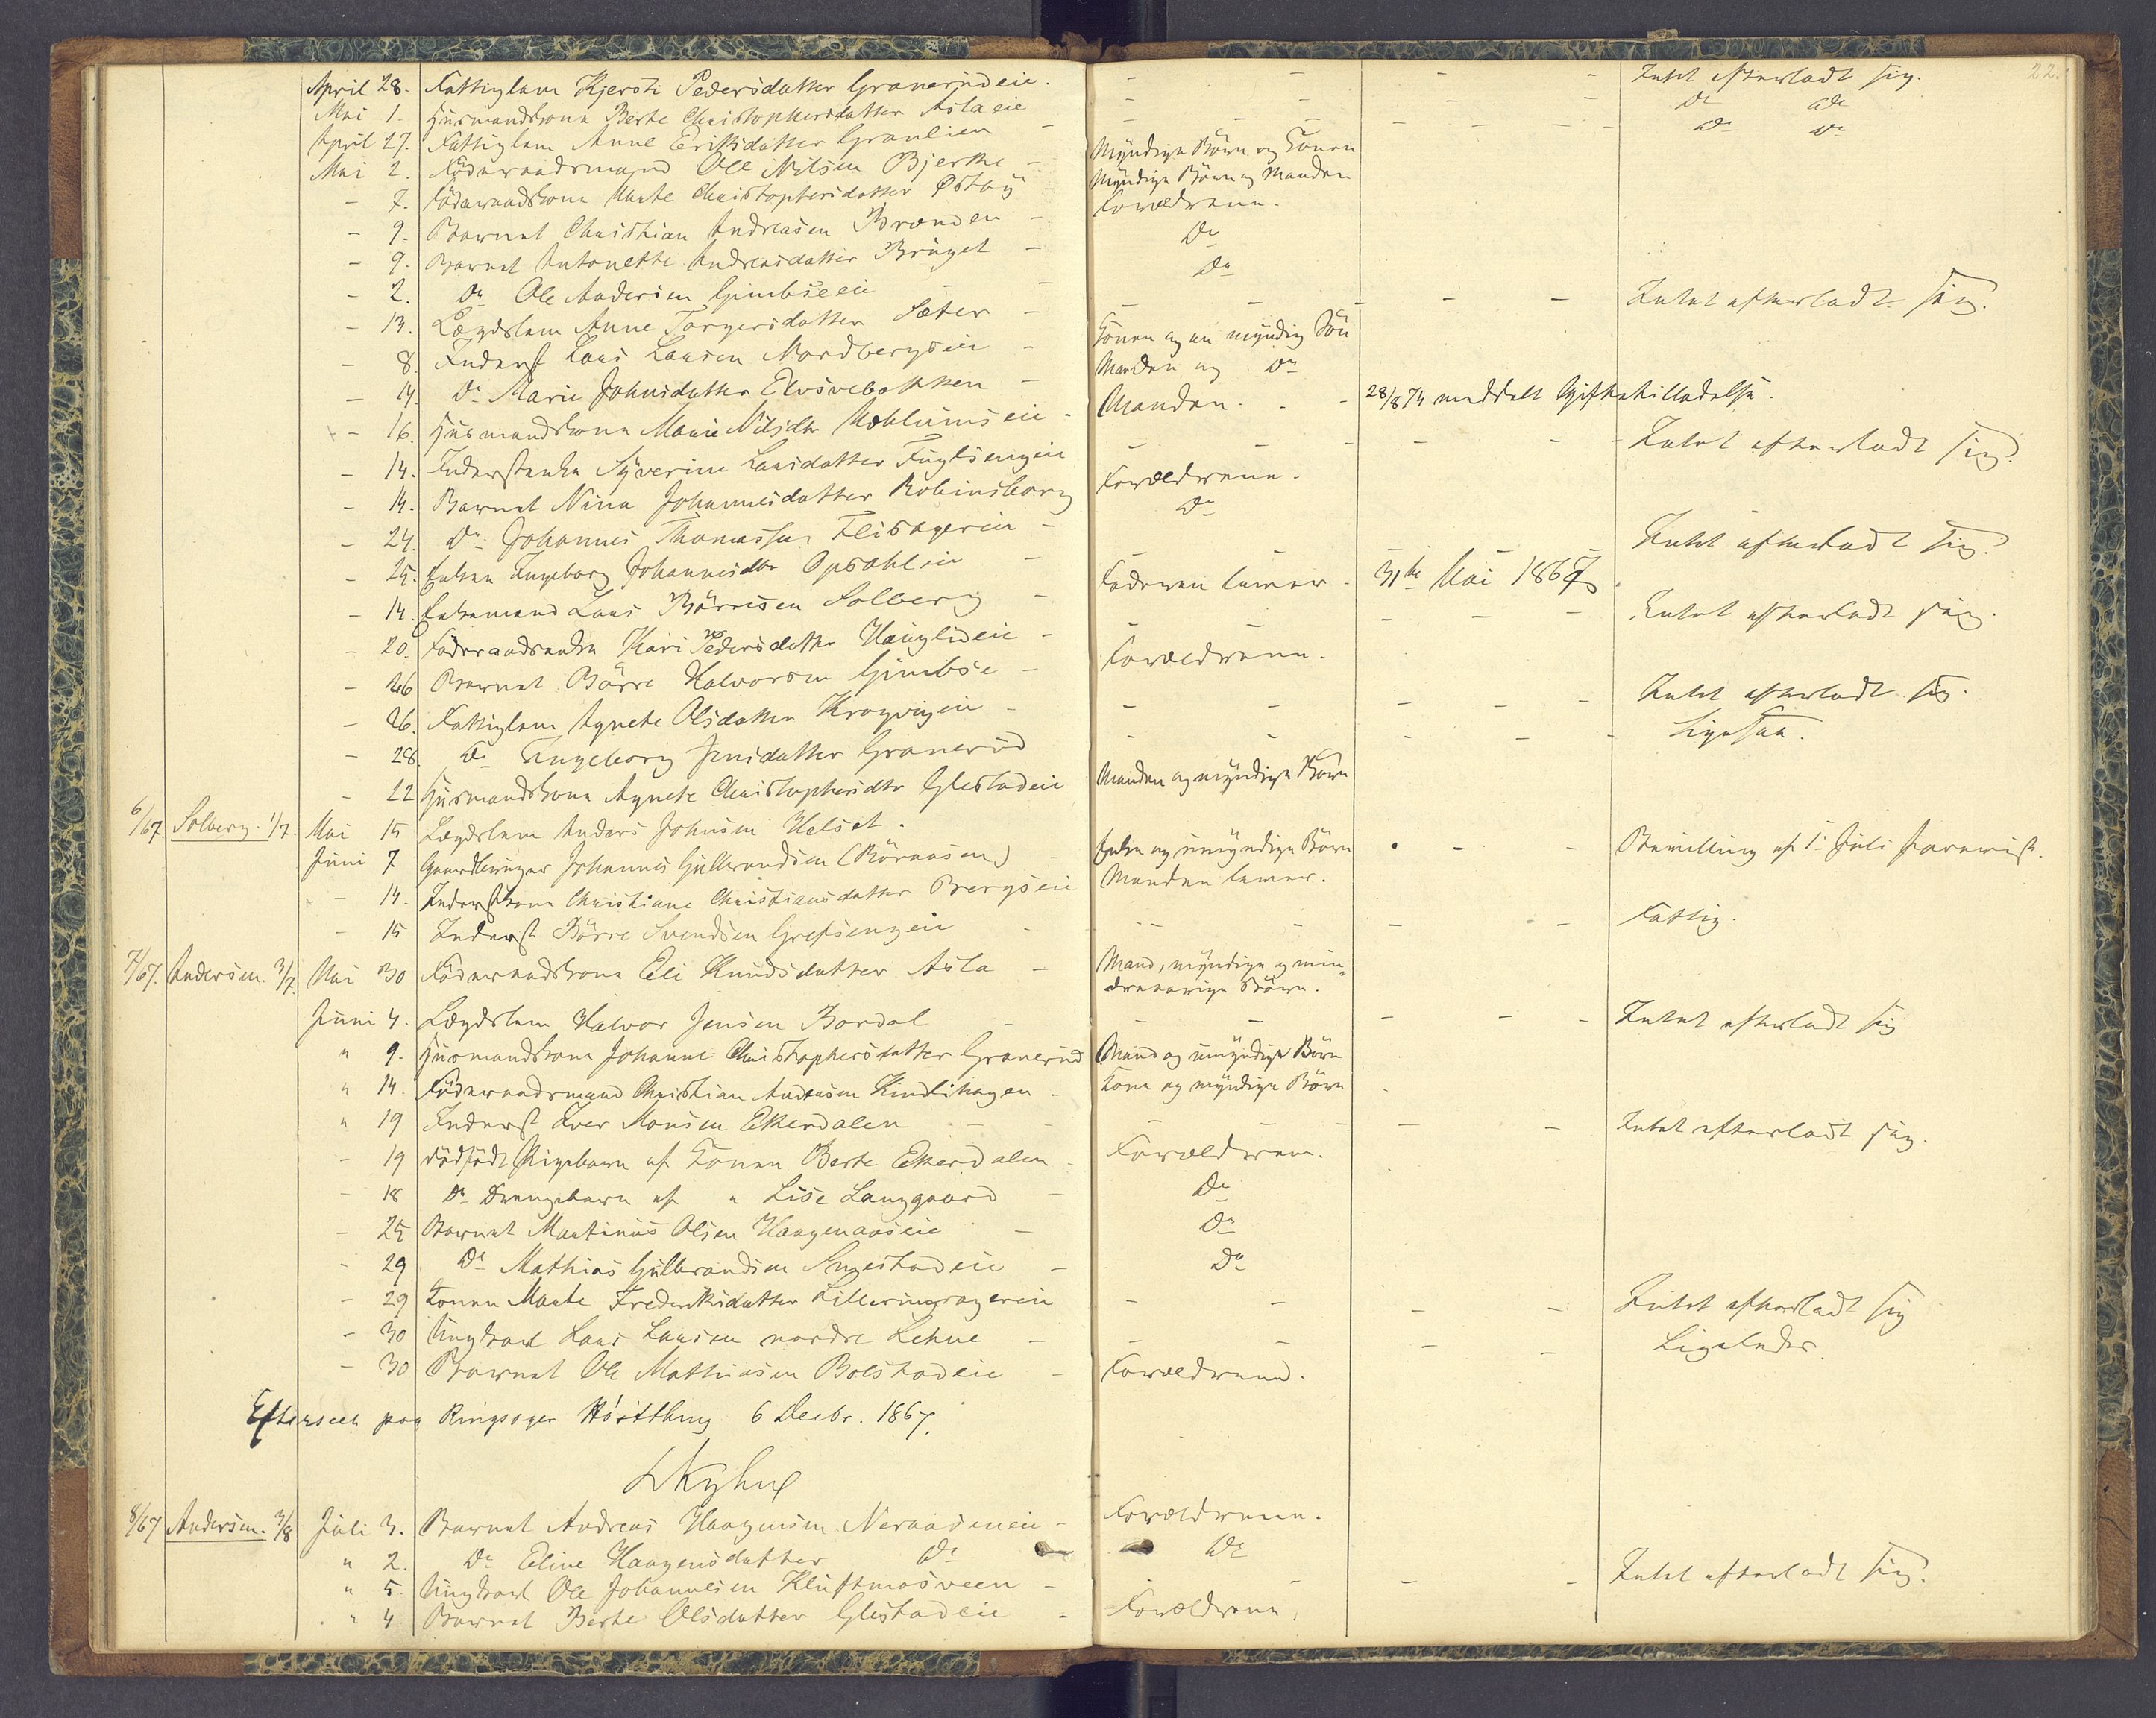 22.
April 28. Fattiglem Kjersti Pedersdatter Granerudeie. - - - - Intet efterladt sig.
Mai 1. Huusmandskone Berte Christophersdatter Aslaeie - - - Do Do
April 27. Fattiglem Anne Eriksdatter Granlien - - - - - Do Do
Mai 2. Föderaadsmand Ole Nilsen Bjerke - Myndige Börn og Konen
- 7. Föderaadskone Marte Christophersdatter Östby - Myndige Börn og Manden
- 9. Barnet Christian Andreasen Brænden - Forældrene.
- 9. Barnet Antonette Andreasdatter Brüget - Do
- 2. Do Ole Andersen Gimbseeie - Do
- 13. Lægdslem Anne Torgersdatter Sæter - - - - Intet efterladt sig.
- 8. Inderst Lars Larsen Nordbergseie - Konen og en myndig Sön
- 14. Do Marie Johnsdatter Elvsvebakken - Manden og Do
- 16. Huusmandskone Marie Nilsdtr Mæhlumseie - Manden. - - 28/8 74 meddelt Giftetilladelse.
- 14. Inderstenke Syverine Larsdatter Fuglsengeie - - - - Intet efterladt sig.
- 14. Barnet Nina Johannesdatter Robinsborg Forældrene.
- 24. Do Johannes Thomassen Flisagereie - Do
- 25. Enken Ingeborg Johannesdtr Opsahleie - - - Intet efterladt sig.
- 14. Enkemand Lars Börresen Solberg - Faderen lever - 31te Mai 1867.
- 20. Föderaadsenke Kari Pedersdatter Haugliseie - - - - Intet efterladt sig.
- 26 Barnet Börre Halvorsen Gimbse - Forældrene.
- 26. Fattiglem Agnete Olsdatter Kragvigeie - - - - Intet efterladt sig.
- 28. Do Ingeborg Jensdatter Granerud - - - - Ligesaa.
- 22 Huusmandskone Agnete Christophersdtr Glestadeie Manden og myndige Börn
6/67. Solberg. 1/7. Mai 15 Lægdslem Anders Johnsen Helset.
Juni 7 Gaardbruger Johannes Gulbrandsen (Böraasen) - Enke og umyndige Börn - - Bevilling af 1 Juli forevist.
- 14. Inderstkone Christiane Christiansdatter Bergseie Manden lever.
- 15 Inderst Börre Svendsen Grefsengeie - - - - Fattig.
7/67. Andersen. 3/7. Mai 30 Föderaadskone Eli Knudsdatter Asla - Mand, myndige og min-
dreaarige Börn.
Juni 4. Lægdslem Halvor Jensen Bordal - - - - Intet efterladt sig
" 9. Huusmandskone Johanne Christophersdatter Granerud Mand og umyndige Börn
" 14. Föderaadsmand Christian Andersen Kindlihagen - Kone og myndige Börn
" 19 Inderst Iver Monsen Ekerdalen - - - - Intet efterladt sig.
- 19 dödfödt Pigebarn af Konen Berte Ekerdalen - Forældrene.
- 18 Do Drengebarn af " Lise Langgaard - Do
- 25 Barnet Martinus Olsen Haagenaaseie - Do
- 29 Do Mathias Gulbrandsen Smestadeie - Do
- 29 Konen Marte Fredriksdatter Lilleringsagereie - - - - Intet efterladt sig
- 30 Ungkarl Lars Larsen nordre Lehne - - - - Ligeledes.
- 30 Barnet Ole Mathiasen Bolstadeie - Forældrene.
Efterseet paa Ringsager Hösitthing 6 Decbr. 1867.
8/67 Andersen. 3/8 Juli 3. Barnet Andreas Haagensen Neraaseneie - Forældrene.
" 2. Do Eline Haagensdatter Do - Do
" 5. Ungkarl Ole Johannesen Kluftmosveen - - - - Intet efterladt sig.
" 4. Barnet Berte Olsdatter Glestadeie - Forældrene.